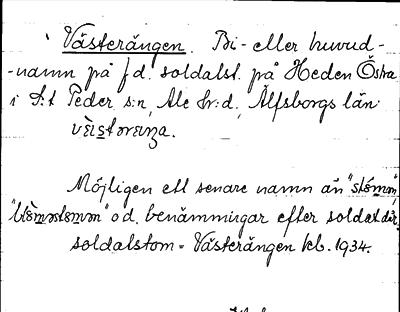 Västerängen. Bi- eller huvud-
-namn på f d. soldatst. på Heden Östra
i S:t Peder s:n, Ale hr:d, Älfsborgs län.
Möjligen ett senare namn än "stómən",
"blòmstomən" o d. benämningar efter soldat där.
soldatstom = Västerängen kb. 1934.